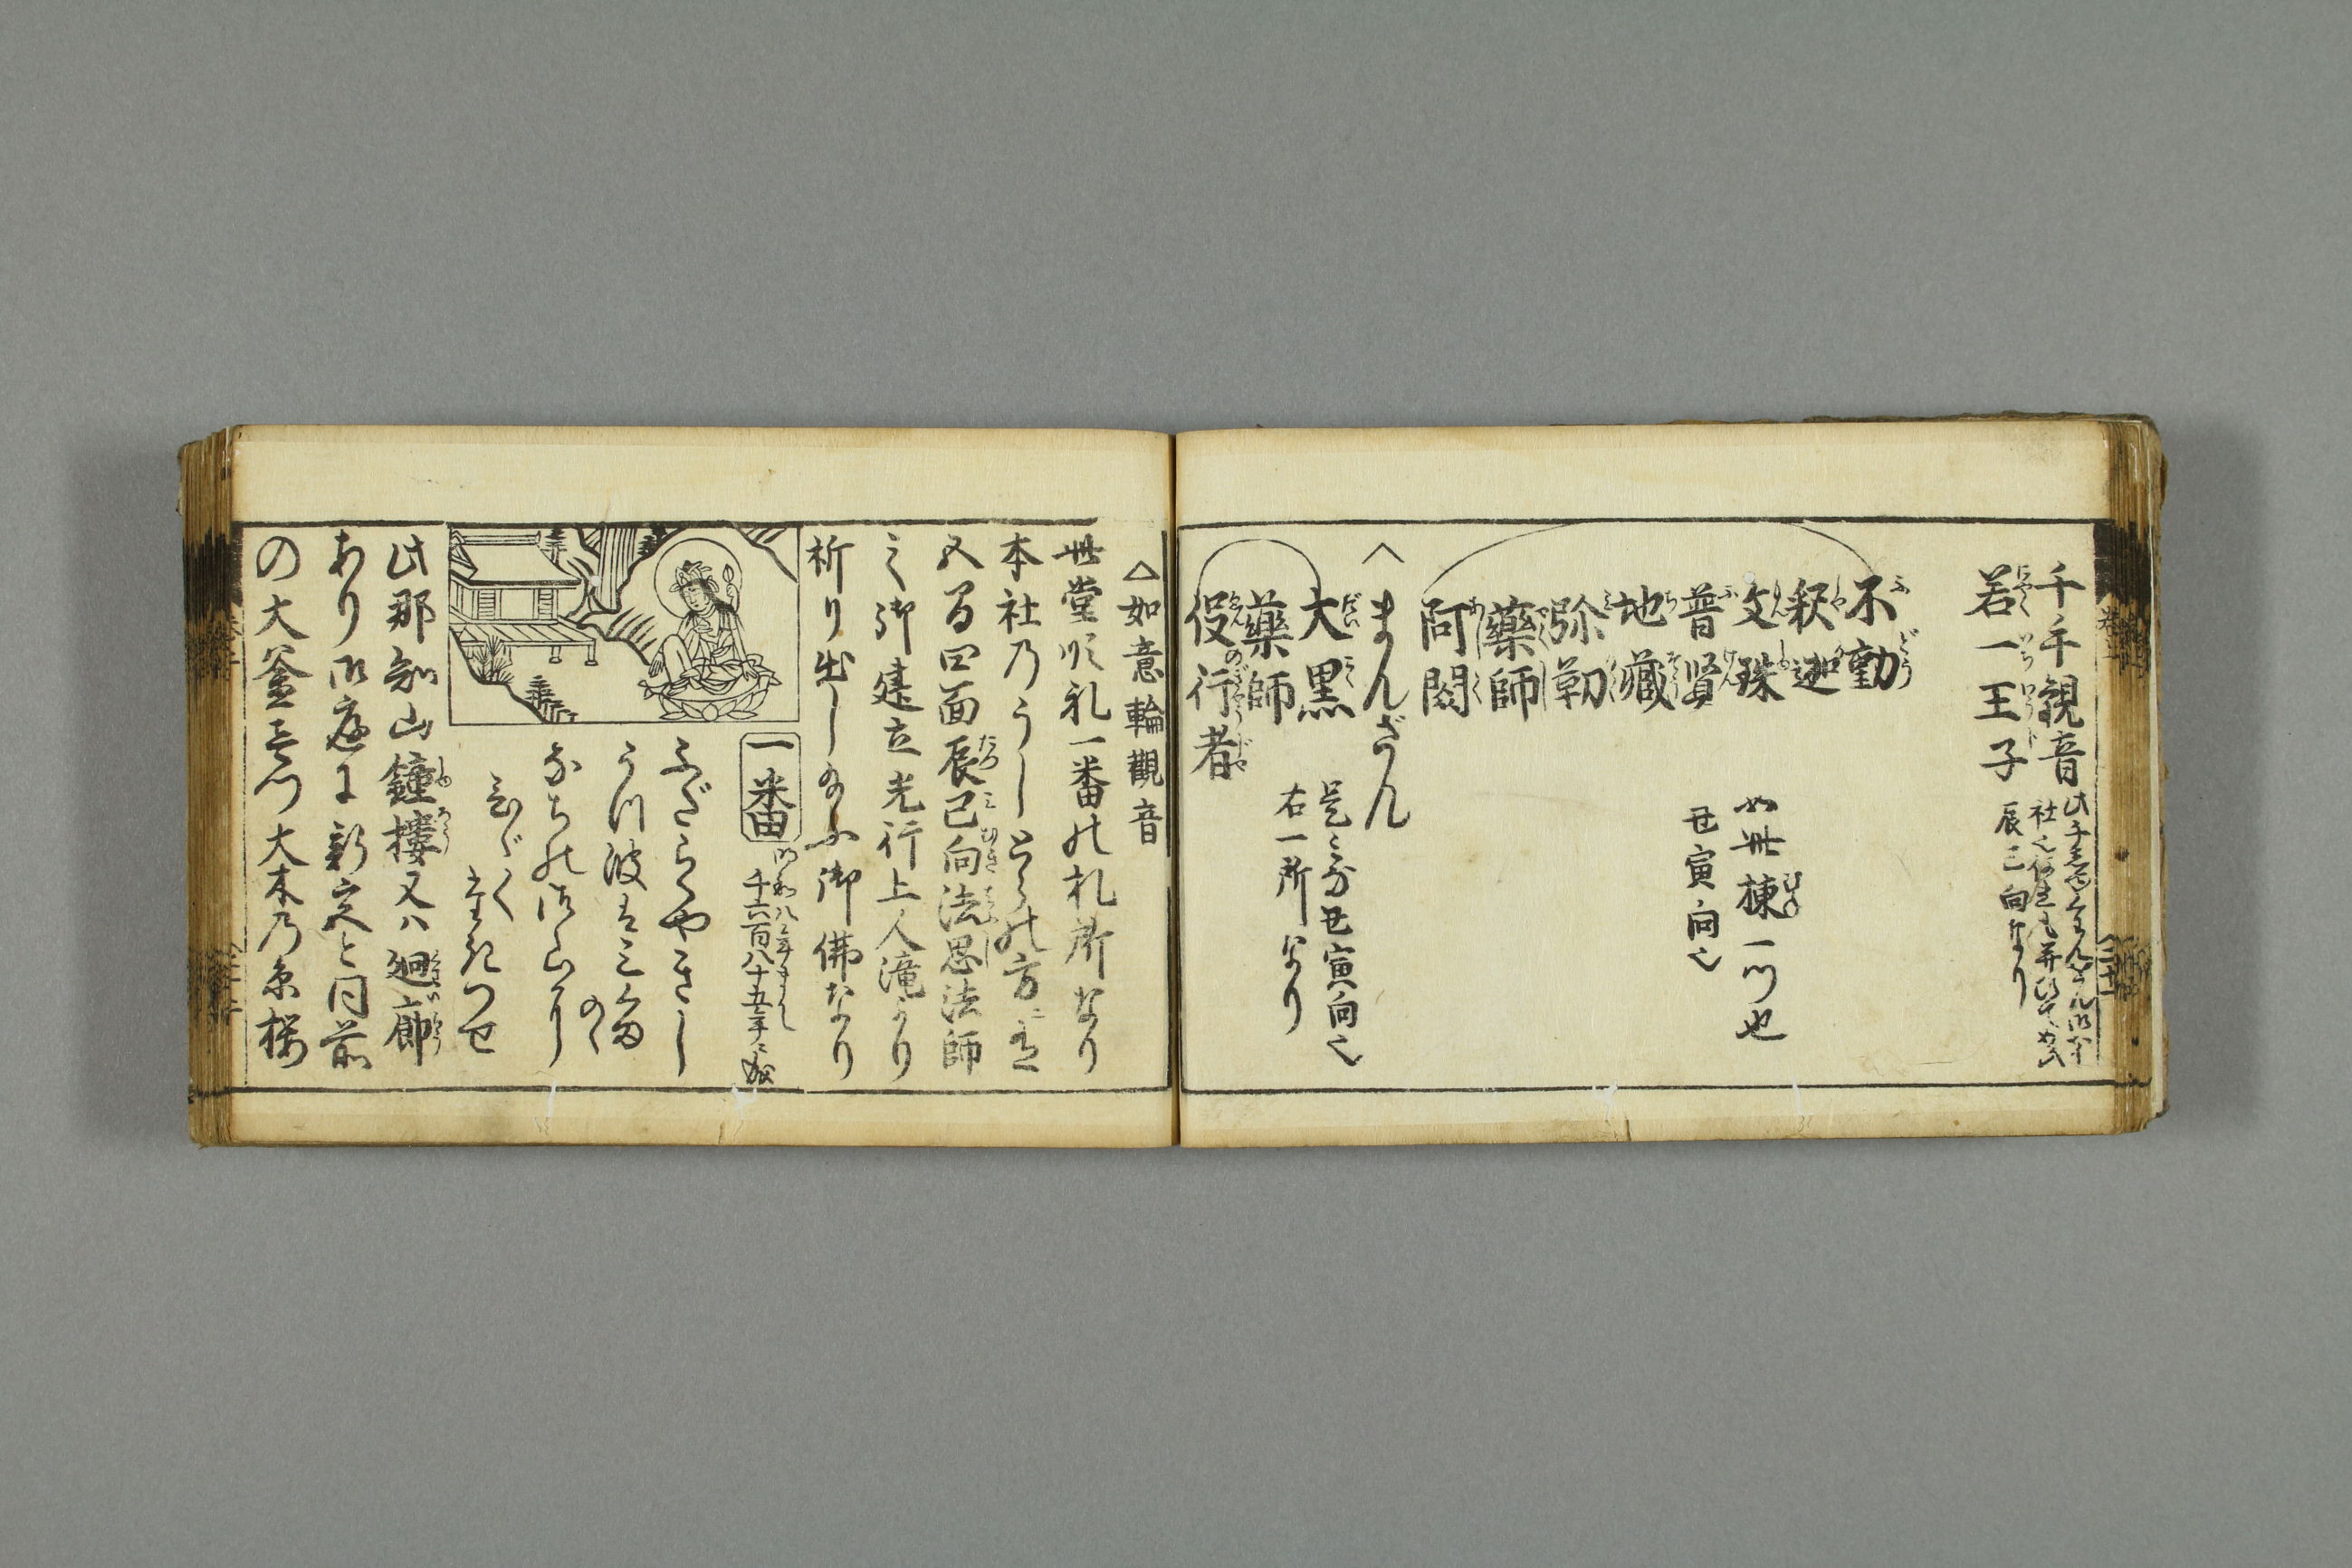 千手観音
若一王子
辰巳向なり
不動
釈迦
文珠
普賢
地蔵
弥勒
薬師
阿閦
如此棟一つ也
丑寅向也
まんざん
大黒
薬師
役行者
丑寅向也
右一所なり
△如意輪觀音
此堂順礼一番の札所なり
本社乃うしとらの方に有
又る四面辰巳向法恩法師
之御建立光行上人滝より
祈り出し給ふ御佛なり
一番
千六百八十五年ニ成
ふだらくやきし
うつ波は三熊
のゝ
なちの御山に
ひゞく
たきつせ
此那智山鐘樓又ハ廻廊
あり御庭に新宮と同前
の大釜壱つ大木乃糸桜